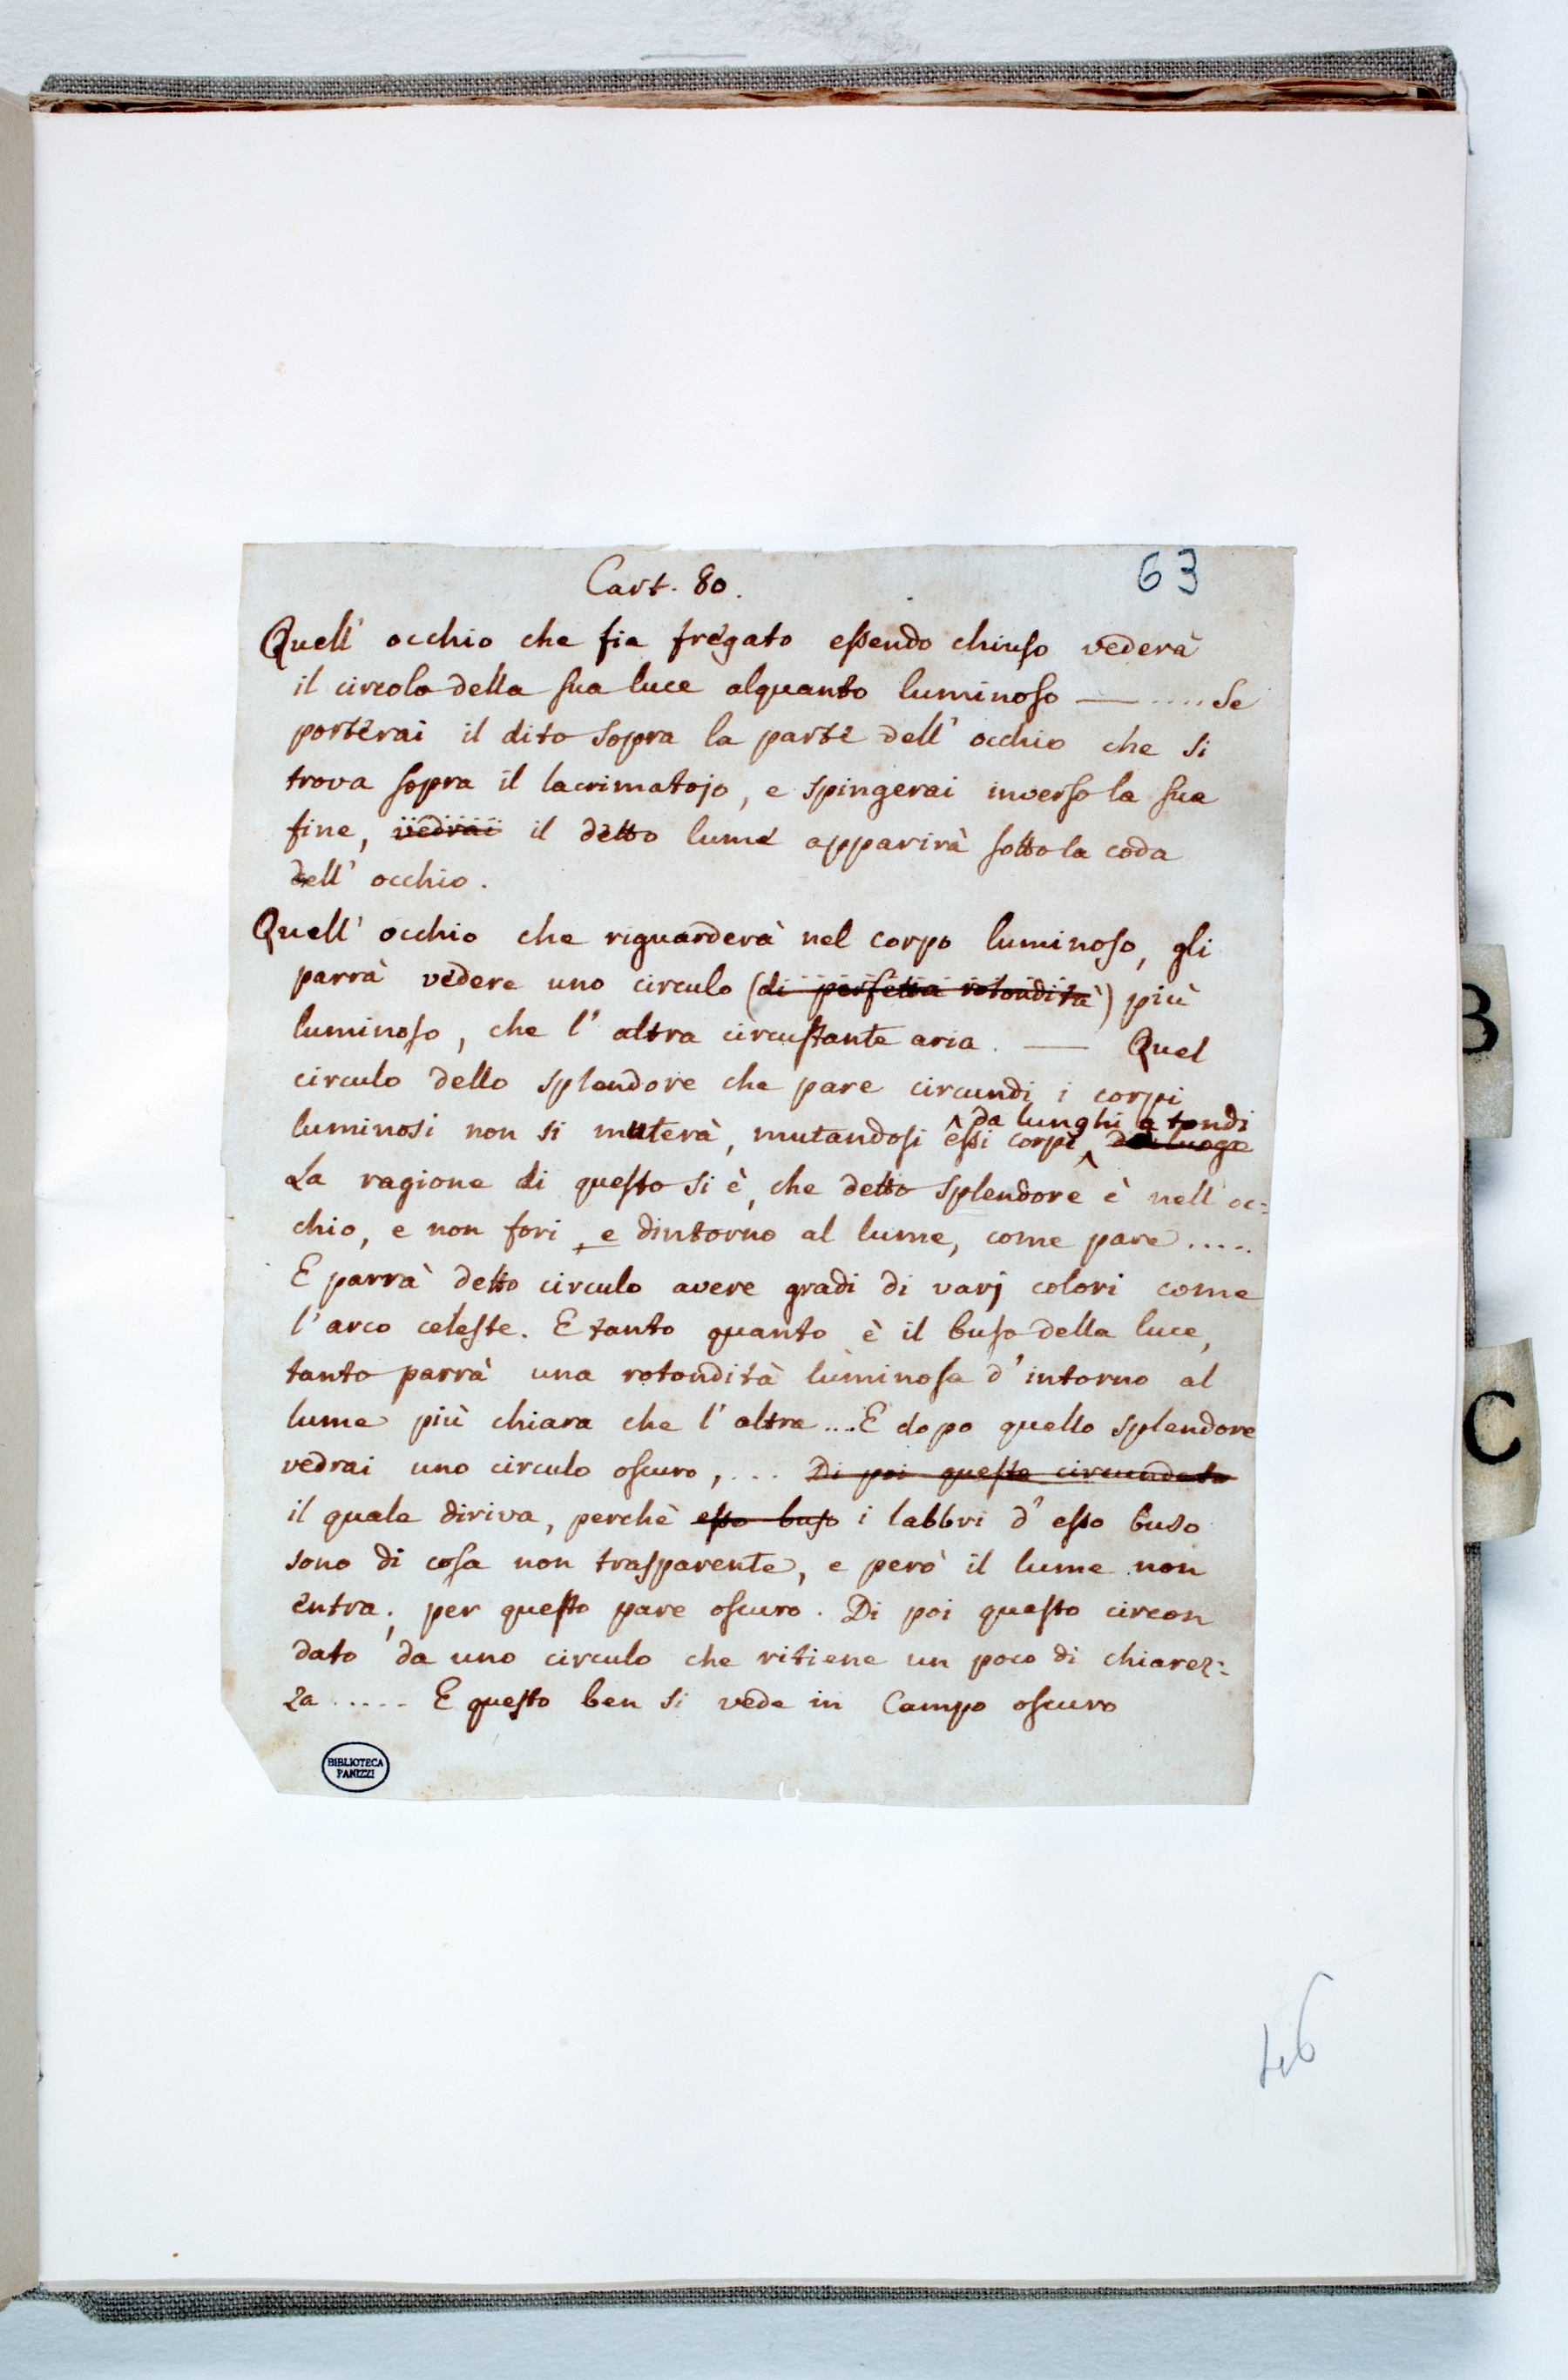 Cart. 80.
63
Quell' occhio che fia fregato essendo chiuso vederà
il circolo della sua luce alquanto luminoso — .... Se
porterai il dito sopra la parte dell' occhio che si
trova sopra il lacrimatojo, e spingerai inverso la sua
fine, vedrai il detto lume apparirà sotto la coda
dell' occhio.
Quell' occhio che riguarderà nel corpo luminoso, gli
parrà vedere uno circulo (di perfetta rotondità) più
luminoso, che l' altra circustante aria. — Quel
circulo dello splendore che pare circundi i corpi
da lunghi a tondi
luminosi non si muterà, mutandosi essi corpi, luogo
La ragione di questo si è, che detto splendore è nell' oc=
chio, e non fori, e dintorno al lume, come pare .....
E parrà detto circulo avere gradi di varj colori come
l' arco celeste. E tanto quanto è il buso della luce,
tanto parrà una rotondità luminosa d' intorno al
lume più chiara che l' altra ... E dopo quello splendore
vedrai uno circulo oscuro, ... Di poi questo circundato
il quale diriva, perchè esso buso i labbri d' esso buso
sono di cosa non trasparente, e però il lume non
entra; per questo pare oscuro. Di poi questo circon
dato da uno circulo che ritiene un poco di chiarez=
za ..... E questo ben si vede in Campo oscuro
BIBLIOTECA
PANIZZI
B
C
46